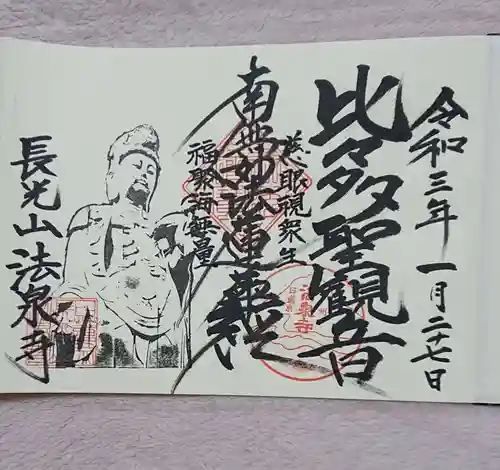 令和三年一月二十七日
比多聖観音
慈眼視衆生
福聚海無量
南無妙法蓮華経
長光山法泉寺